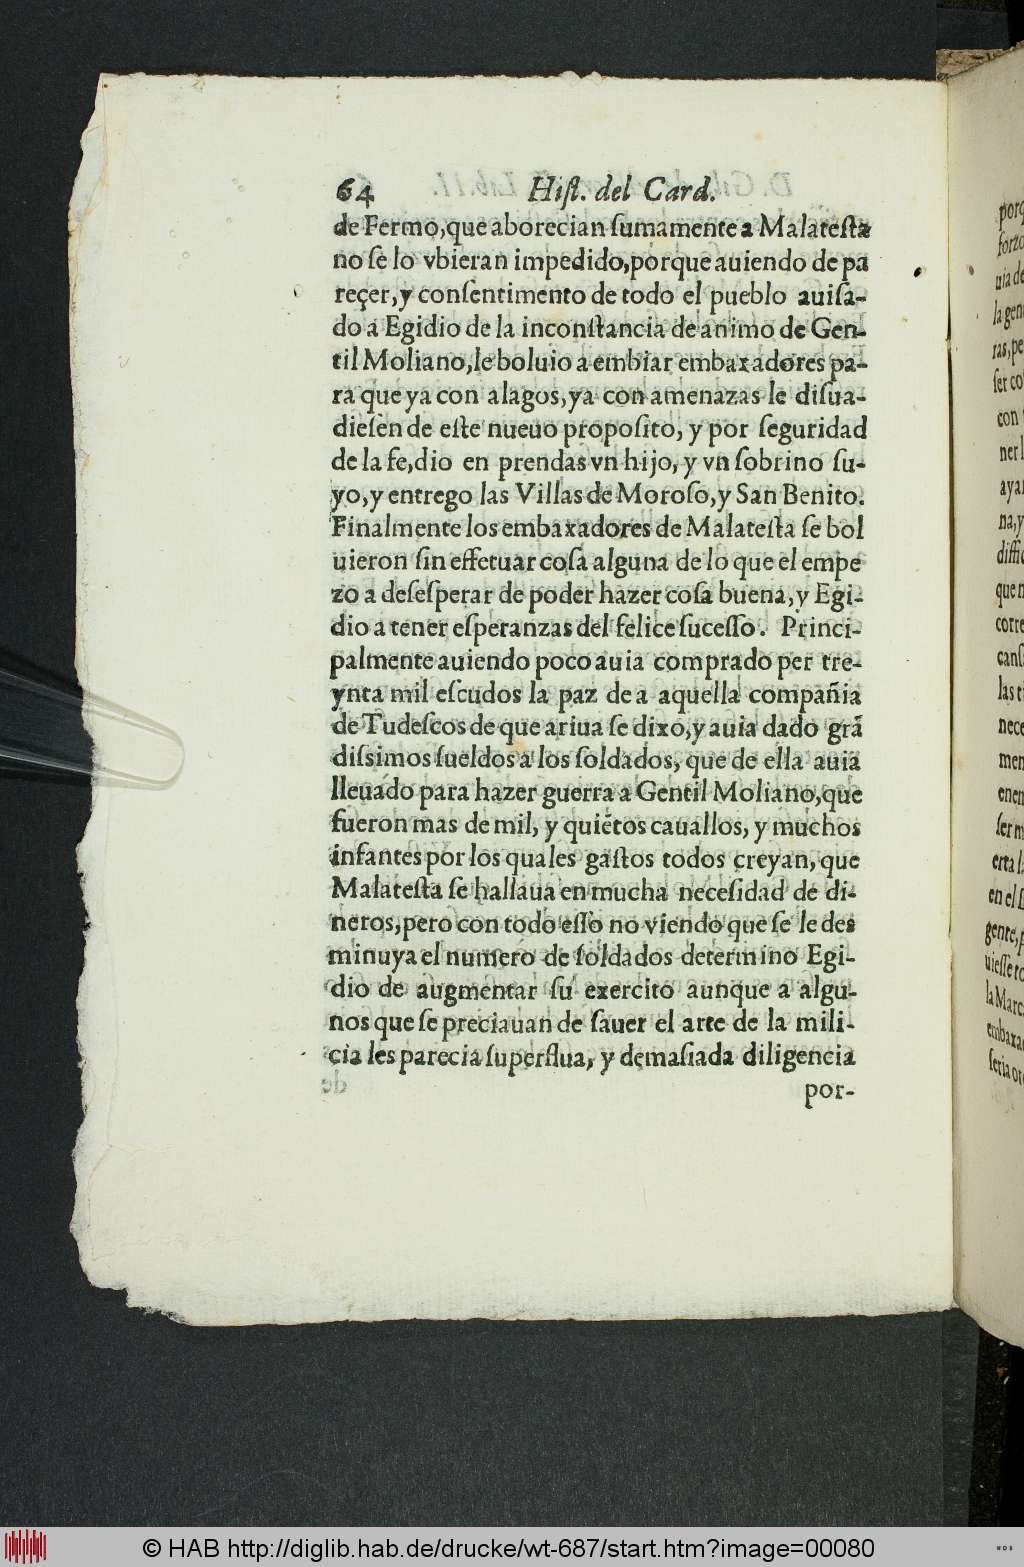 64 Hiſt. del Card.
de Fermo, que aborecian ſumamente a Malateſta
no ſe lo vbieran impedido, porque auiendo de pa
reçer, y conſentimento de todo el pueblo auiſa-
do a Egidio de la inconſtancia de animo de Gen-
til Moliano, le boluio a embiar embaxadores pa-
ra que ya con alagos, ya con amenazas le diſua-
dieſen de eſte nueuo propoſito, y por ſeguridad
de la fe, dio en prendas vn hijo, y vn ſobrino ſu-
yo, y entrego las Villas de Moroſo, y San Benito.
Finalmente los embaxadores de Malateſta ſe bol
uieron ſin effetuar coſa alguna de lo que el empe
zo a deſeſperar de poder hazer coſa buena, y Egi-
dio a tener eſperanzas del felice ſuceſſo. Princi-
palmente auiendo poco auia comprado per tre-
ynta mil eſcudos la paz de a aquella compañia
de Tudeſcos de que ariua ſe dixo, y auia dado grã
diſsimos ſueldos a los ſoldados, que de ella auia
lleuado para hazer guerra a Gentil Moliano, que
fueron mas de mil, y quiẽtos cauallos, y muchos
infantes por los quales gaſtos todos creyan, que
Malateſta ſe hallaua en mucha neceſidad de di-
neros, pero con todo eſſo no viendo que ſe le des
minuya el numero de ſoldados determino Egi-
dio de augmentar ſu exercito aunque a algu-
nos que ſe preciauan de ſauer el arte de la mili-
cia les parecia ſuperflua, y demaſiada diligencia
por-
© HAB http://diglib.hab.de/drucke/wt-687/start.htm?image=00080